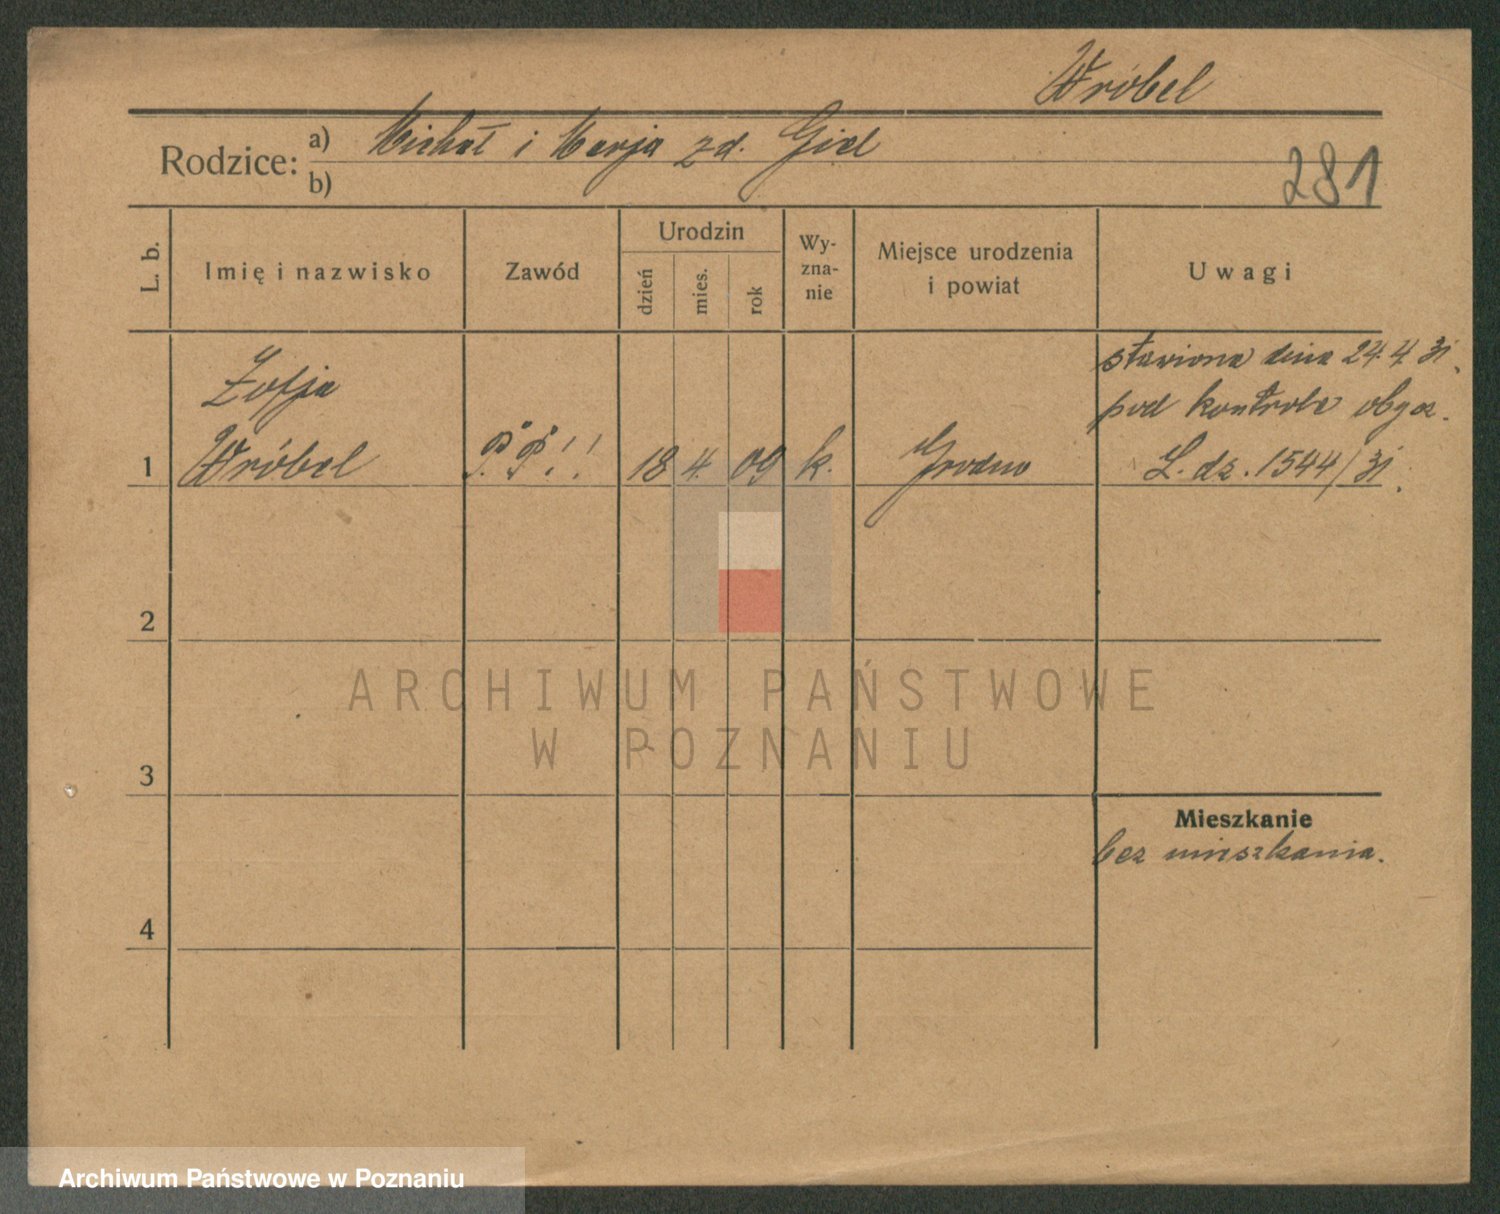 Wróbel
Rodzice: a) Michał i Marja zd. Giel
b)
281
L. b.
Imię i nazwisko
Zawód
Urodzin
dzień
mies.
rok
Wy-
zna-
nie
Miejsce urodzenia
i powiat
Uwagi
stawiona dnia 24.4 31.
pod kontrolę obycz.
L. dz. 1544/31.
Zofja
1 Wróbel P. P.!! 18 4. 09 k. Grodno
2
3
4
Mieszkanie
bez mieszkania.
ARCHIWUM PAŃSTWOWE
W POZNANIU
Archiwum Państwowe w Poznaniu